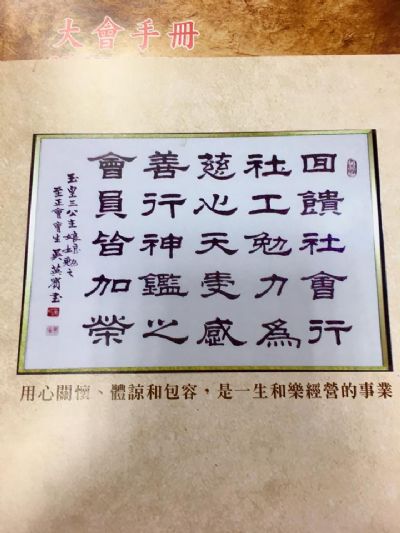 大會手冊
回饋社會行
社工勉力為
慈心天唛感
善行神鑑之
會員皆加榮
玉皇三公主娘娘勉之
至正會會生吳英賓玉
用心關懷、體諒和包容，是一生和樂經營的事業